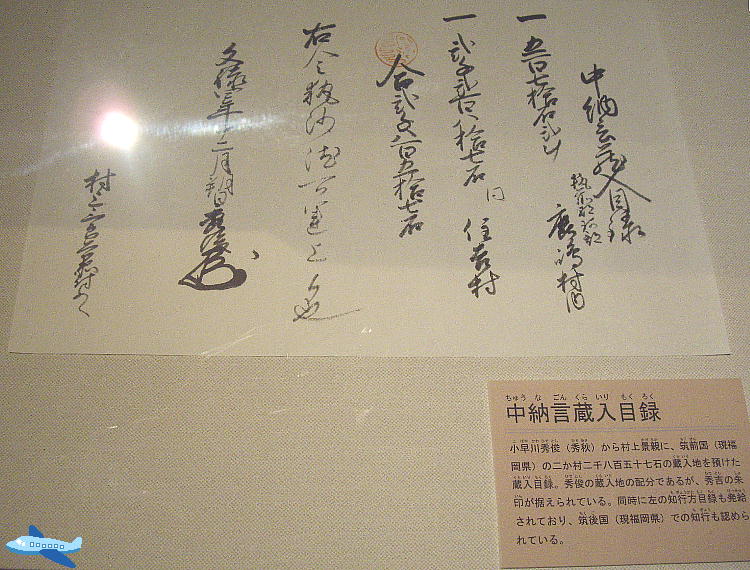 中納言蔵入目録
一 五百七拾石
村内
一 弐千弐百八拾七石 同 住吉村
合弐千八百五拾七石
右令執沙汰可運上者也
文禄四年十二月朔日
村上
ちゅう な ごん くら いり もく ろく
中納言蔵入目録
小早川秀俊（秀秋）から村上景親に、筑前国（現福
岡県）の二か村二千八百五十七石の蔵入地を預けた
蔵入目録。秀俊の蔵入地の配分であるが、秀吉の朱
印が据えられている。同時に左の知行方目録も発給
されており、筑後国（現福岡県）での知行も認めら
れている。